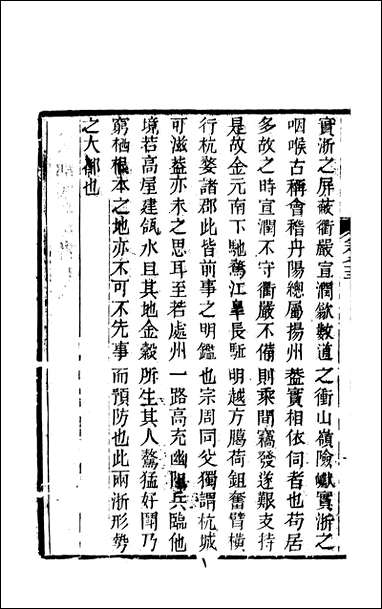 實浙之屏蔽衢嚴宣潤歙數道之衝山嶺險巇實浙之
咽喉古稱會稽丹陽總屬揚州葢實相依伺者也苟居
多故之時宣潤不守衢嚴不備則乘間竊發遂艱支持
是故金元南下馳驁江皐長駈明越方臈荷鉏奮臂橫
行杭婺諸郡此皆前事之明鑑也宗周同父獨謂杭城
可滋葢亦未之思耳至若處州一路高充幽阻兵臨他
境若高屋建瓴水且其地金穀所生其人驁猛好鬪乃
窮栖根本之地亦不可不先事而預防也此兩浙形勢
之大都也